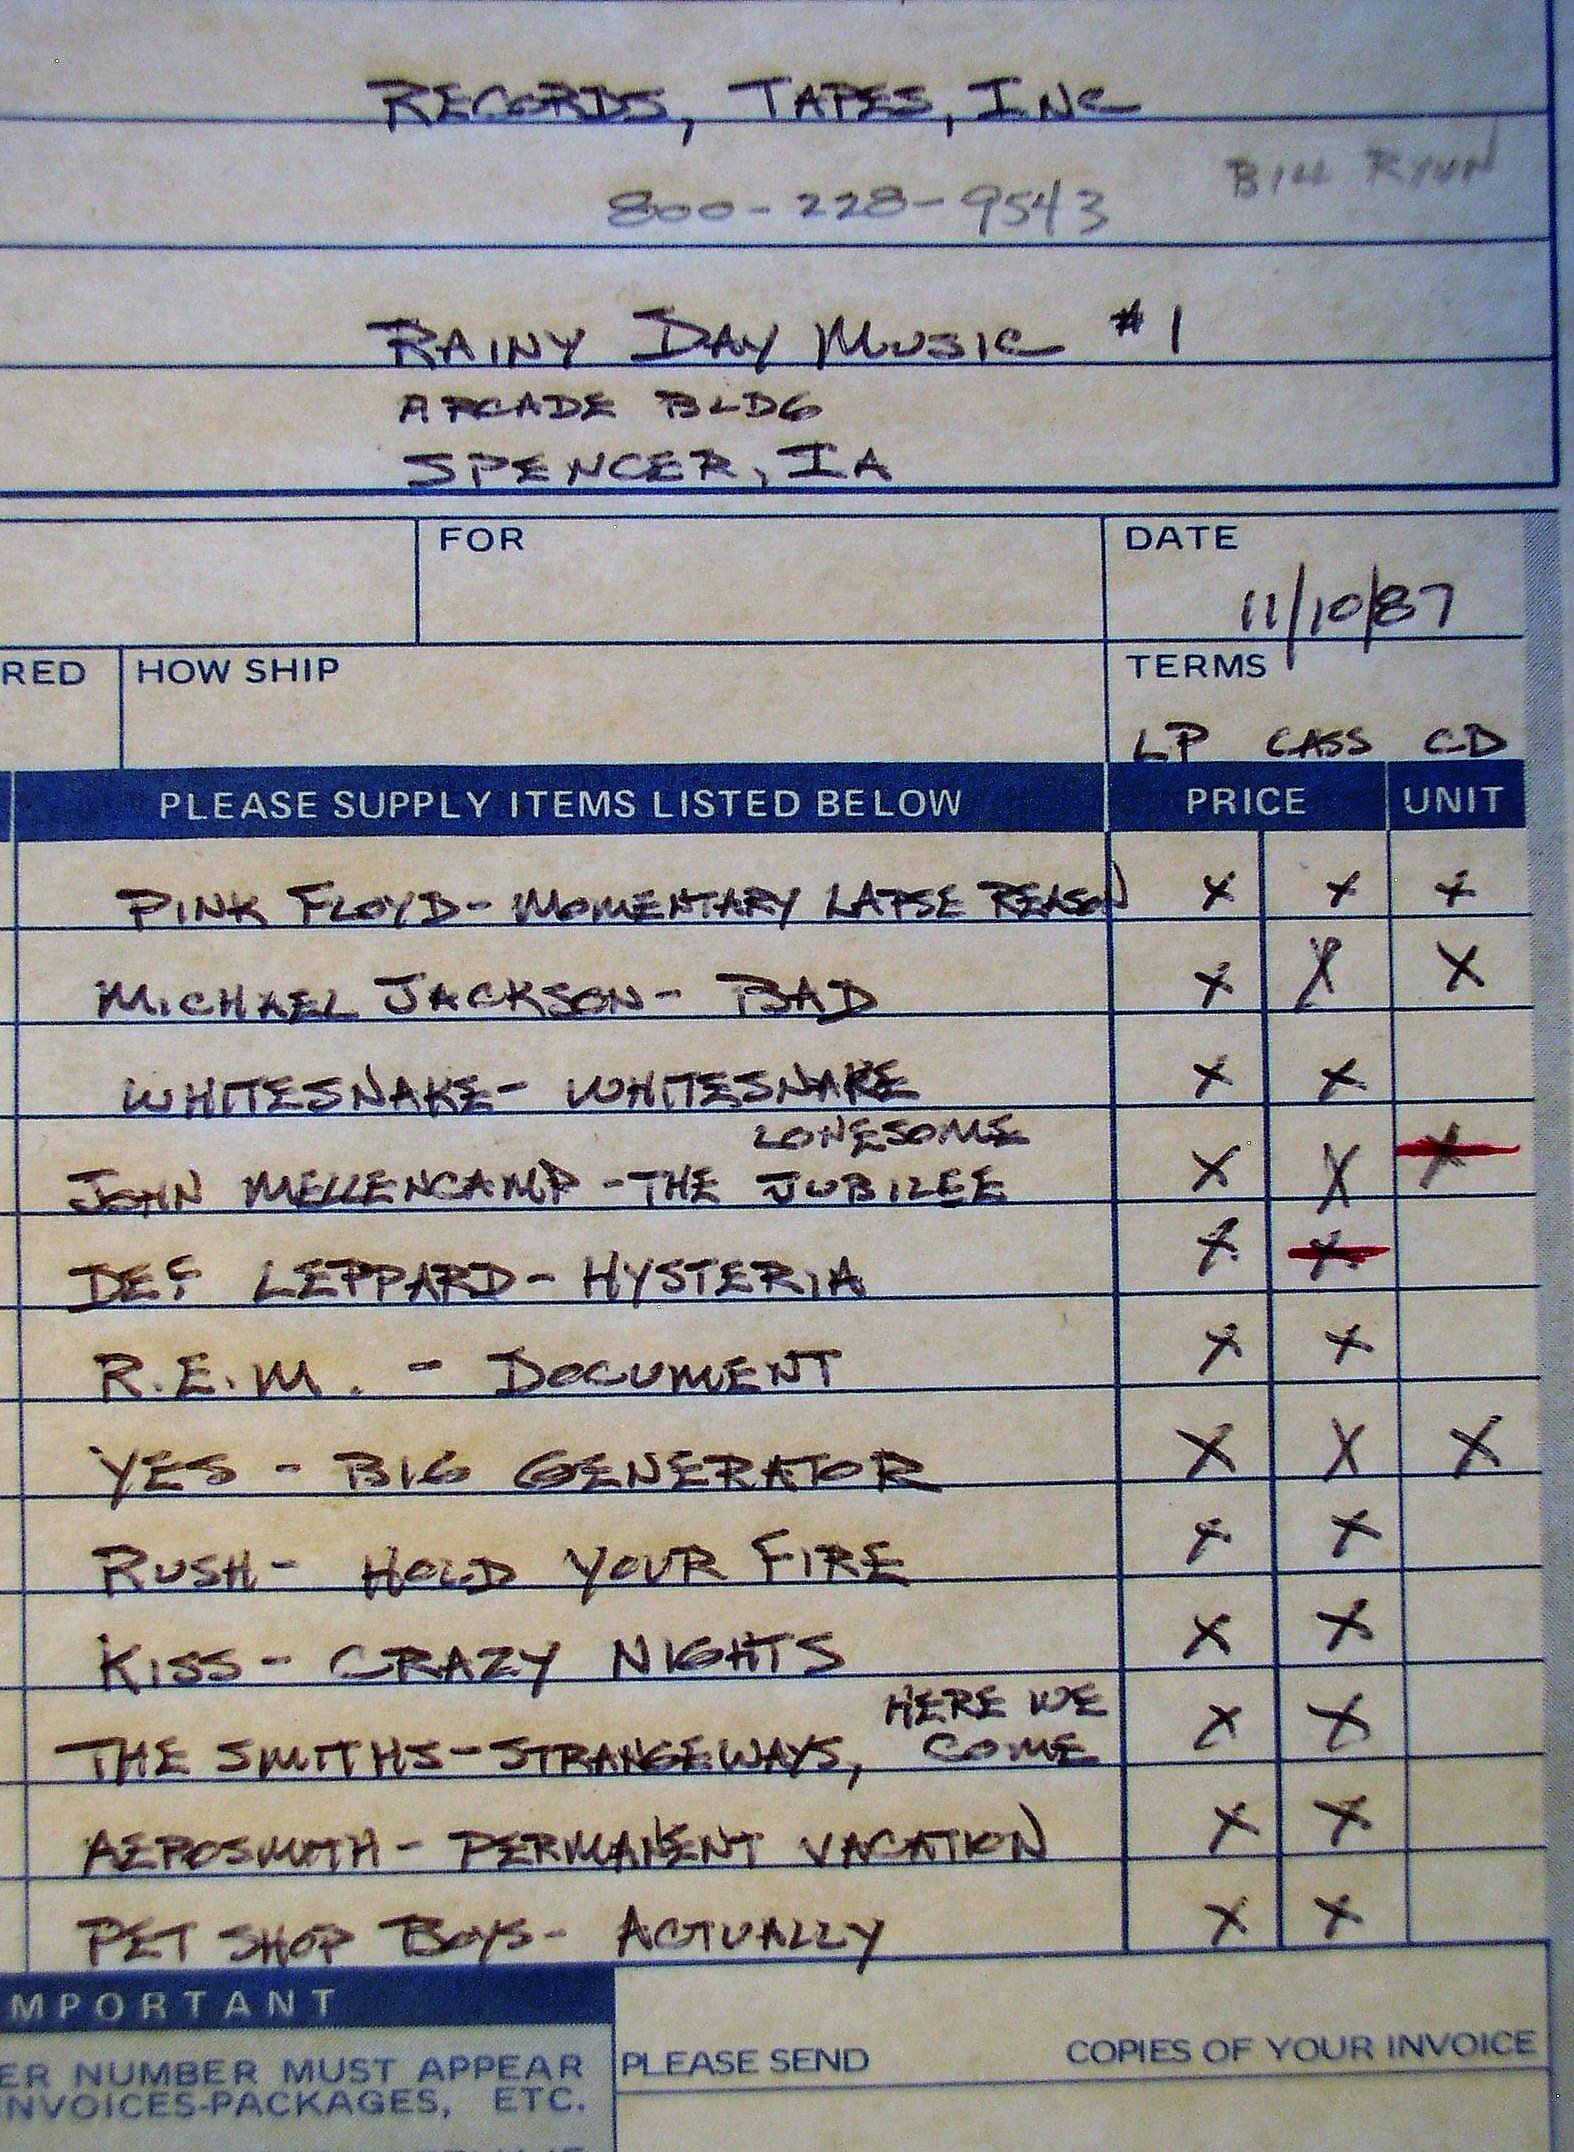 RECORDS, TAPES, INC
800-228-9543 BILL RYUN
RAINY DAY MUSIC #1
ARCADE BLDG
SPENCER, IA
FOR DATE
11/10/87
RED HOW SHIP TERMS
LP CASS CD
PLEASE SUPPLY ITEMS LISTED BELOW PRICE UNIT
PINK FLOYD - MOMENTARY LAPSE REASON X X X
MICHAEL JACKSON - BAD X X X
WHITESNAKE - WHITESNAKE X X
LONESOME
JOHN MELLENCAMP - THE JUBILEE X X X
DEF LEPPARD - HYSTERIA X X
R.E.M. - DOCUMENT X X
YES - BIG GENERATOR X X X
RUSH - HOLD YOUR FIRE X X
KISS - CRAZY NIGHTS X X
HERE WE
THE SMITHS - STRANGEWAYS, COME X X
AEROSMITH - PERMANENT VACATION X X
PET SHOP BOYS - ACTUALLY X X
MPORTANT
ER NUMBER MUST APPEAR
NVOICES-PACKAGES, ETC.
PLEASE SEND COPIES OF YOUR INVOICE